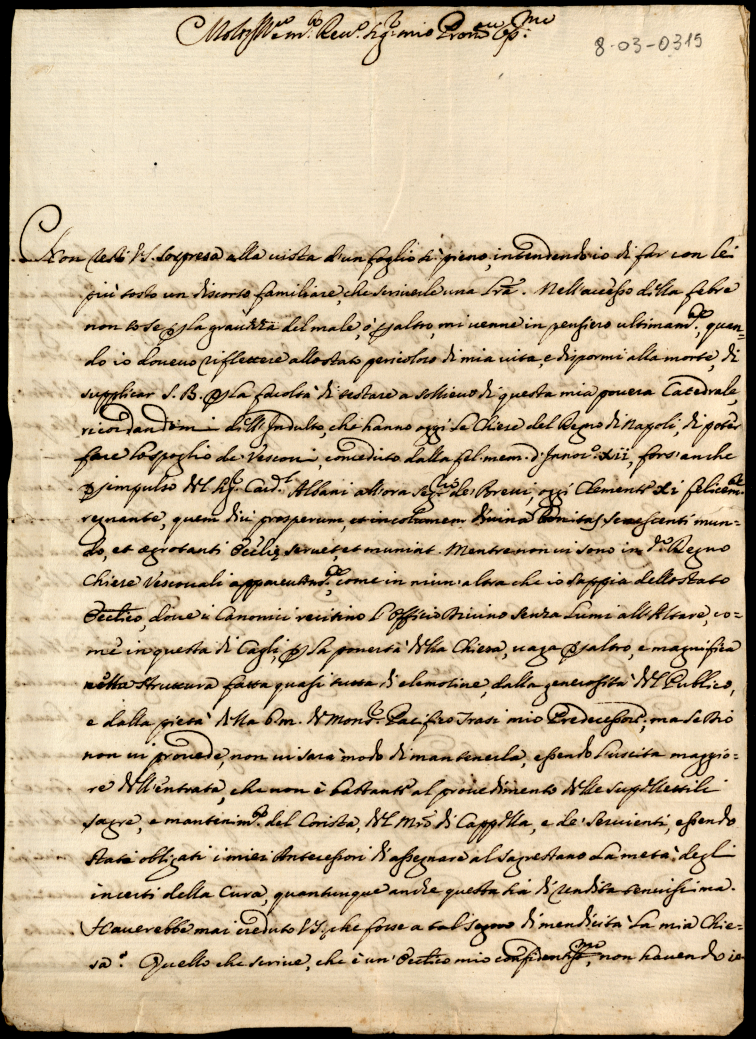 Molt'Ill.re e m.to Rev.do Sig.r mio P.ron Oss.mo
8-03-0315
Non resti V.S. sorpresa alla vista d'un foglio sì pieno, intendendo io di far con lei
più tosto un discorso familiare, che scriverle una lrã. Nell'accesso della febre
non so se p la gravezza del male, ò p altro, mi venne in pensiero ultimam.te, quan=
do io dovevo riflettere allo stato pericoloso di mia vita, e dispormi alla morte, di
supplicar S. B. p la facoltà di testare a sollievo di questa mia povera Catedrale,
ricordandomi dell'Indulto, che hanno oggi le Chiese del Regno di Napoli, di poter
fare lo spoglio de' Vescovi, conceduto dalla fel: mem. d'Innoc.o XII, fors'anche
p impulso del Sig.r Card.l Albani allora Seg.rio de' Brevi, oggi Clemente XI felicem.te
regnante, quem diu prosperum, et incolumem divina Bonitas senescenti mun=
do, et ægrotanti Ecclię servet, et muniat. Mentre non vi sono in d.o Regno
Chiese Vescovali apparentem.te, come in niun'altra che io sappia dello stato
Ecclico, dove i Canonici recitino l'Officio Divino senza Lumi all'Altare, co=
me in questa di Cagli, p la povertà della Chiesa, vaga p altro, e magnifica
nella struttura fatta quasi tutta di elemosine, dalla generosità del Publico,
e dalla pietà della b.m. di Mons.r Pacifico Trasi mio Predecessore; ma se Dio
non vi provede, non vi sarà modo di mantenerla, essendo l'uscita maggio=
re dell'entrata, che non è bastante al provedimento delle supellettili
sagre, e mantenim.to del Corista, del Mrõ di Cappella, e de' Servienti, essendo
stati obligati i miei Antecessori di assegnare al Sagrestano la metà degli
incerti della Cura, quantunque anche questa sia di rendita tenuissima.
Haverebbe mai creduto V.S. che fosse a tal segno di mendicità la mia Chie=
sa? Quello che scrive, che è un' Ecclico mio confidentiss.mo, non havendo io